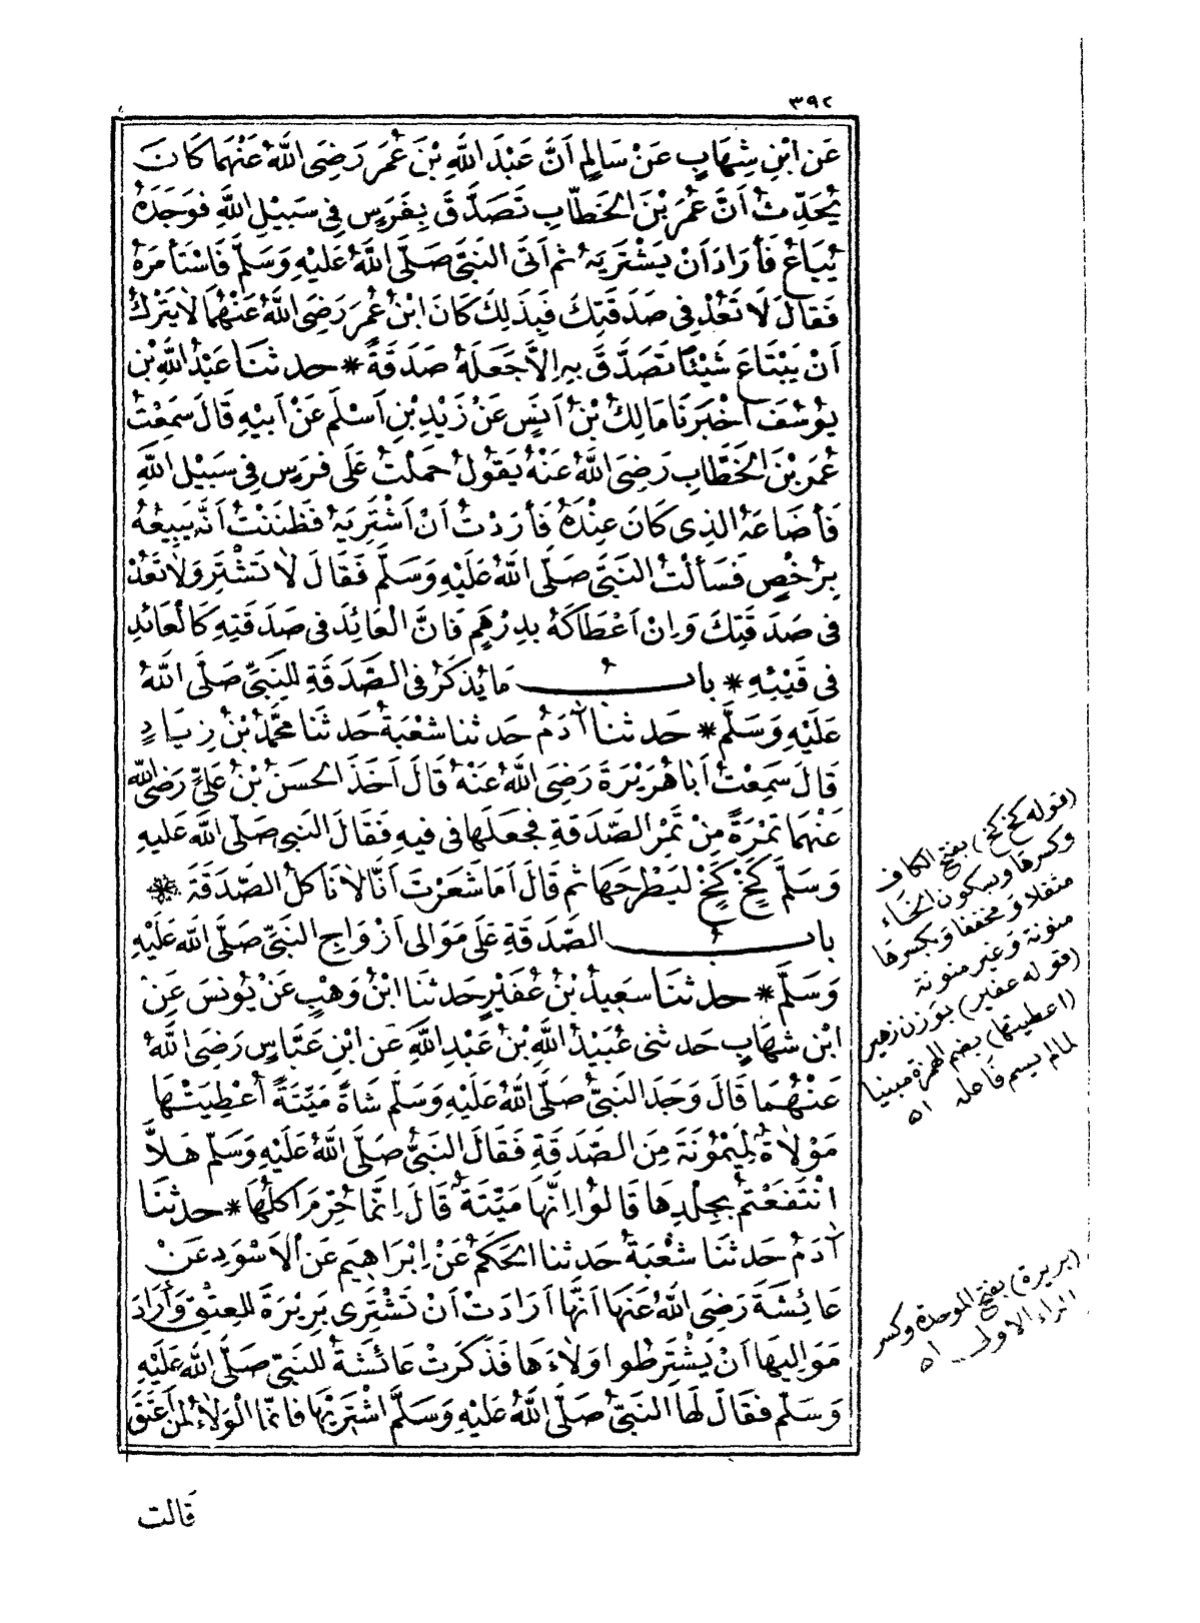 ٣٩٢
عَن ابْنِ شِهَابٍ عَنْ سَالِمٍ اَنَّ عَبْدَ اللهِ بْنَ عُمَرَ رَضِىَ اللهُ عَنْهُمَا كَانَ
يُحَدِّثُ اَنَّ عُمَرَ بْنَ الخَطَّابِ تَصَدَّقَ بِفَرَسٍ فِى سَبِيْلِ اللهِ فَوَجَدَهُ
يُبَاعُ فَأَرَادَ اَنْ يَشْتَرِيَهُ ثم اَتَى النَبِىَّ صَلَّى اللهُ عَلَيْهِ وَسَلَّمَ فَاسْتَأمَرَهُ
فَقَالَ لَا تَعُدْ فِى صَدَقَتِكَ فَبِذَلِكَ كَانَ ابْنُ عُمَرَ رَضِىَ اللهُ عَنْهُمَا لَا يَتْرُكُ
اَنْ يَبْتَاعَ شَيْئًا تَصَدَّقَ بِهِ اِلَّا جَعَلَهُ صَدَقَةً * حدثنَا عَبْدُ اللهِ بْن
يُوْسُفَ اَخْبَرَنَا مَالِكُ بْنُ اَنَسٍ عَنْ زَيْدِ بْنِ اَسْلَمَ عَنْ اَبِيْهِ قَالَ سَمِعْتُ
عُمَرَ بْنَ الخَطَّابِ رَضِىَ اللهُ عَنْهُ يَقُولُ حَمَلْتُ عَلَى فَرَسٍ فِى سَبِيْلِ اللهِ
فَأَضَاعَهُ الذِى كَانَ عِنْدَهُ فَأَرَدْتُ اَنْ اَشْتَرِيَهُ فَظَنَنْتُ اَنَّهُ يَبِيْعُهُ
بِرُخْصٍ فَسَأَلْتُ النَبِىَّ صَلَّى اللهُ عَلَيْهِ وَسَلَّمَ فَقَالَ لَا تَشْتَرِ وَلَا تَعُدْ
فى صَدَقَتِكَ وَاِنْ اَعْطَاكَهُ بِدِرْهَمٍ فَاِنَّ الْعَائِدَ فى صَدَقَتِهِ كَالْعَائِدِ
فى قَيْئِهِ * بابُ مَا يُذكَرُ فى الصَّدَقَةِ لِلنَبِىِّ صَلَّى اللهُ
عَلَيْهِ وَسَلَّمَ * حَدثنَا آدَمُ حَدثنا شُعْبَةُ حَدثنَا مُحَمَّدُ بْنُ زِيَادٍ
قَالَ سَمِعْتُ اَبَا هُرَيْرَةَ رَضِىَ اللهُ عَنْهُ قَالَ اَخَذَ الحَسَنُ بْنُ عَلِىٍّ رَضِىَ اللهُ
عَنْهُمَا تَمْرَةً مِنْ تَمْرِ الصَّدَقَةِ فجعَلَها فى فِيهِ فَقَالَ النَبِى صَلَّى اللهُ عَليهِ
وَسَلَّمَ كَخْ كَخْ لِيَطْرَحَهَا ثم قَالَ اَمَا شَعَرْتَ اَنَّا لَا نَأكُلُ الصَّدَقَةَ *
بابُ الصَّدَقَةِ عَلَى مَوَالِى اَزْوَاجِ النَبِىِّ صَلَّى اللهُ عَلَيْهِ
وَسَلَّمَ * حدثنَا سَعِيدُ بْنُ عُفَيْرٍ حَدثنَا ابْنُ وَهْبٍ عَنْ يُونُسَ عَنِ
ابْنِ شِهَابٍ حَدثنى عُبَيْدُ اللهِ بْنُ عَبْدِ اللهِ عَنِ ابْنِ عَبَّاسٍ رَضِىَ اللهُ
عَنْهُمَا قَالَ وَجَدَ النَبِىُّ صَلَّى اللهُ عَلَيْهِ وَسَلَّمَ شَاةً مَيِّتَةً اُعْطِيَتْهَا
مَوْلَاةٌ لِمَيْمُونَةَ مِنَ الصَّدَقَةِ فَقَالَ النَبِىُّ صَلَّى اللهُ عَلَيْهِ وَسَلَّمَ هَلَّا
انْتَفَعْتُمْ بِجِلْدِهَا قَالُوا اِنَّهَا مَيْتَةٌ قَالَ اِنَّمَا حُرِّمَ اَكْلُهَا * حدثنَا
آدَمُ حَدثنَا شُعْبَةُ حَدثنا الحَكَمُ عَنْ اِبْرَاهِيمَ عَنِ الْاَسْوَدِ عَنْ
عَائِشَةَ رَضِىَ اللهُ عَنهَا اَنَّهَا اَرَادَتْ اَنْ تَشْتَرِى بَرِيْرَةَ لِلعِتْقِ وَأَرَادَ
مَوَالِيهَا اَنْ يَشْتَرِطُوا وَلَاءَهَا فَذَكَرَتْ عَائِشَةُ لِلنَبِىِّ صَلَّى اللهُ عَلَيْهِ
وَسَلَّمَ فَقَالَ لَهَا النَبِىُّ صَلَّى اللهُ عَلَيْهِ وَسَلَّمَ اشْتَرِيْهَا فَاِنَّمَا الْوَلَاءُ لِمَنْ اَعْتَقَ
قَالت
(قوله كخ كخ) بفتح الكاف
وكسرها وبسكون الخاء
مثقلا ومخففا وبكسرها
منونة وغير منونة
(قوله عفير) بوزن زهير
(اعطيتها) بضم الهمزة مبنيا
لما لم يسم فاعله اه
(بريرة) بفتح الموحدة وكسر
الراء الاولى اه